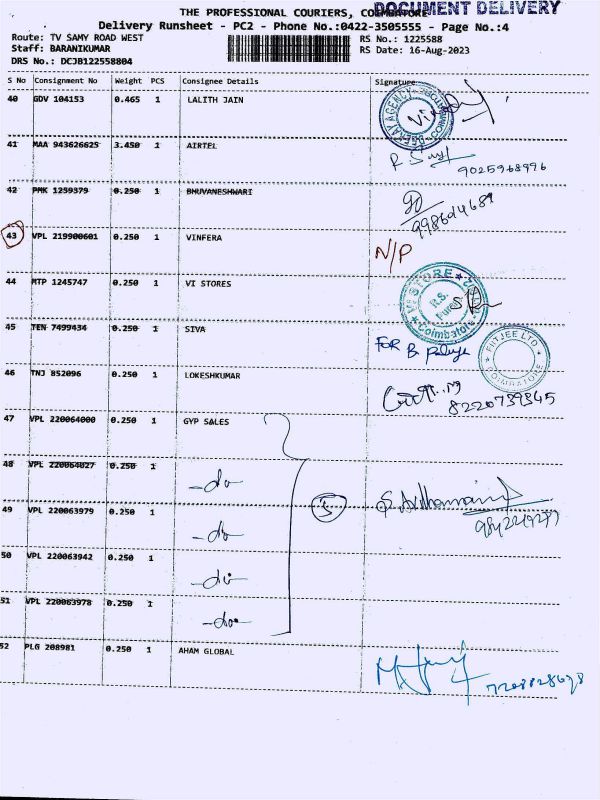 DOCUMENT DELIVERY
THE PROFESSIONAL COURIERS, COIMBATORE
Delivery Runsheet - PC2 - Phone No.:0422-3505555 - Page No.:4
Route: TV SAMY ROAD WEST RS No.: 1225588
Staff: BARANIKUMAR RS Date: 16-Aug-2023
DRS No.: DCJB122558804
S No Consignment No Weight PCS Consignee Details Signature
40 GDV 104153 0.465 1 LALITH JAIN
41 MAA 943626625 3.450 1 AIRTEL
9025968996
42 PMK 1259379 0.250 1 BHUVANESHWARI
43 VPL 219900601 0.250 1 VINFERA N/P
44 MTP 1245747 0.250 1 VI STORES
VI STORE
R.S. Puram
Coimbatore
45 TEN 7499434 0.250 1 SIVA
FOR B
FIITJEE LTD
COIMBATORE
46 TNJ 852096 0.250 1 LOKESHKUMAR
8220739345
47 VPL 220064000 0.250 1 GYP SALES
48 VPL 220064027 0.250 1 -do-
5
49 VPL 220063979 0.250 1 -do-
50 VPL 220063942 0.250 1 -do-
51 VPL 220063978 0.250 1 -do-
52 PLG 208981 0.250 1 AHAM GLOBAL